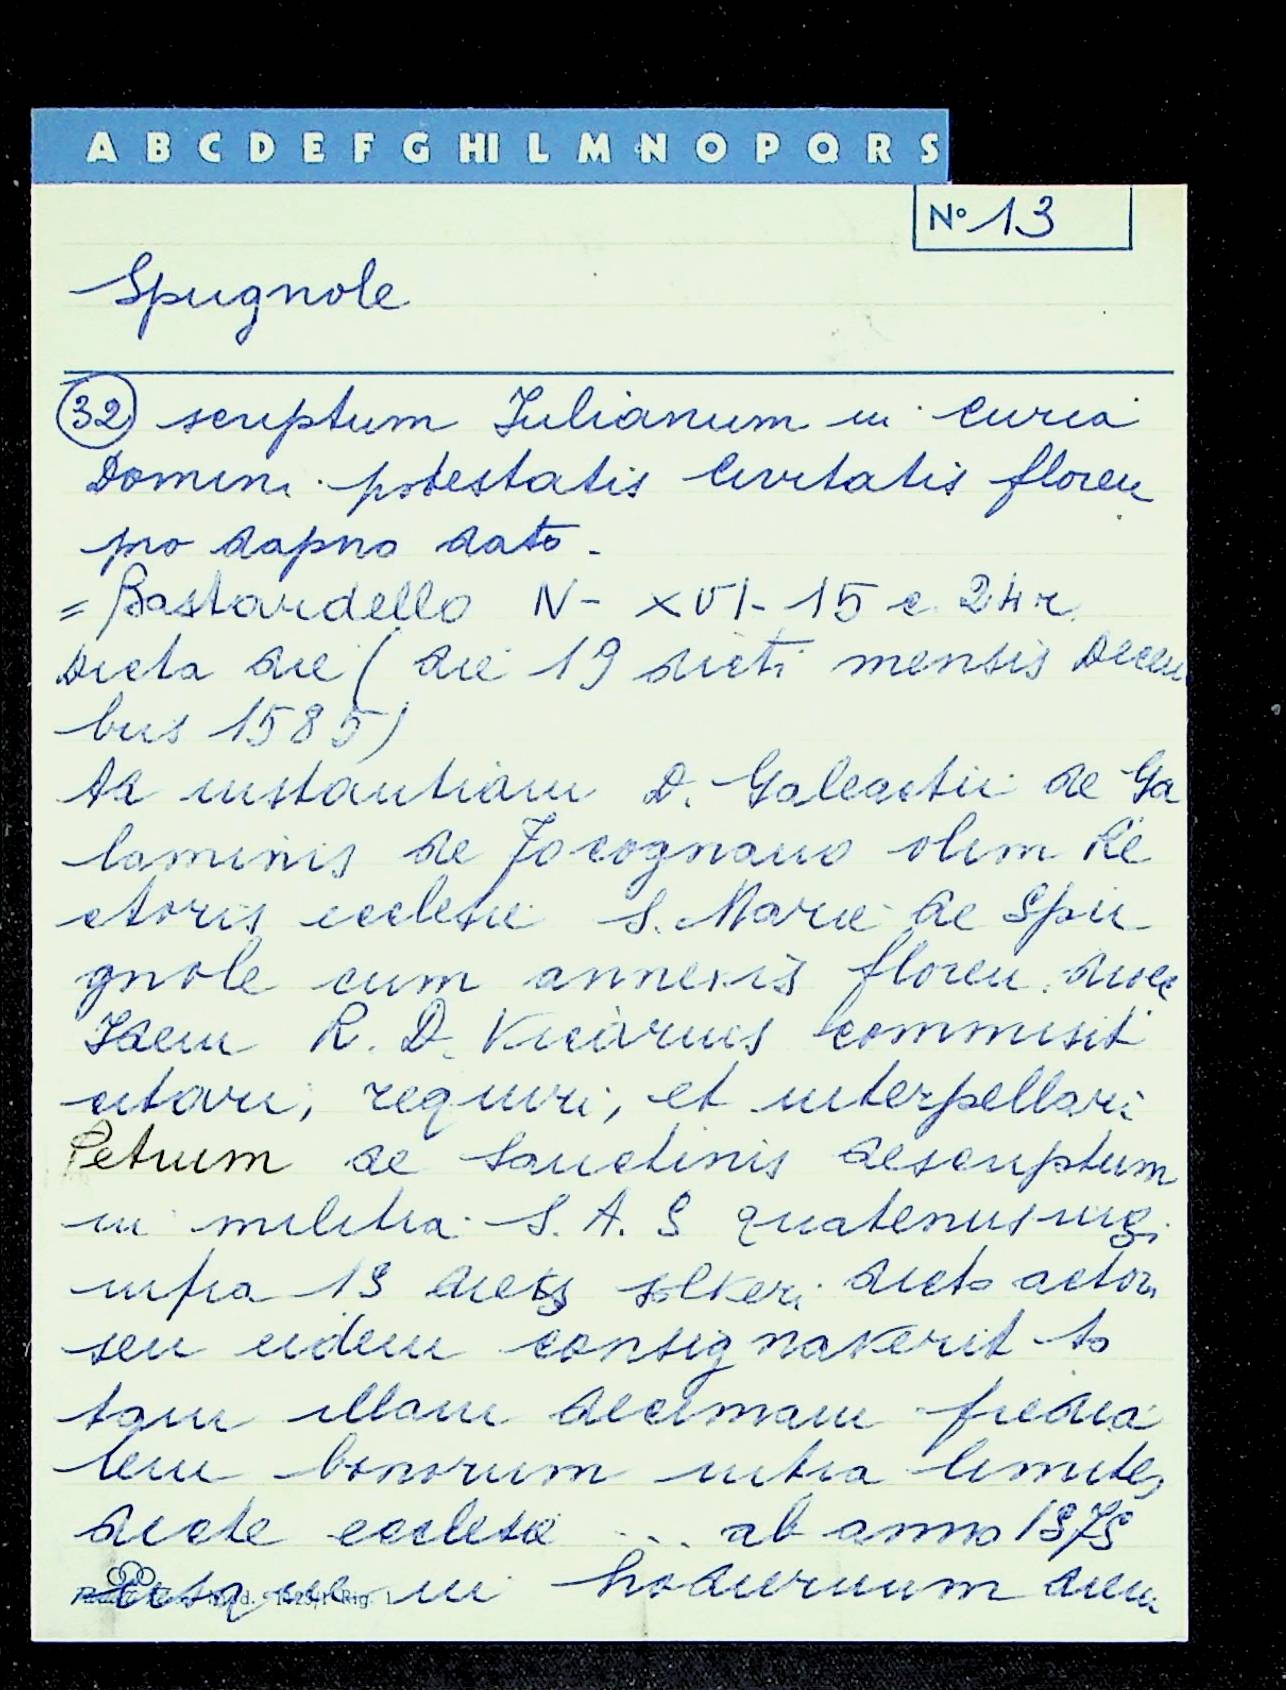 A B C D E F G HI L M N O P Q R S
N° 13
Spugnole
32 scriptum Julianum in curia
Domini potestatis Civitatis floren
pro dapno dato.
= Bastardello N- XVI-15 c. 24r
Dicta die ( die 19 dicti mensis Decem
bris 1585)
Ad instantiam D. Galeactii de Ga
laminis de Jocognano olim Re
ctoris ecclesie S. Marie de Spu
gnole cum annexis floren. dioec
Idem R. D. Vicarius commisit
citari, requiri, et interpellari
Petrum de Sanctinis descriptum
in militia S. A. S quatenus
infra 15 dies solveri dicto actori
seu eidem consignaverit to
tam illam decimam predia
lem bonorum intra limites
dicte ecclesie ... ab anno 1575
usque in hodiernum diem